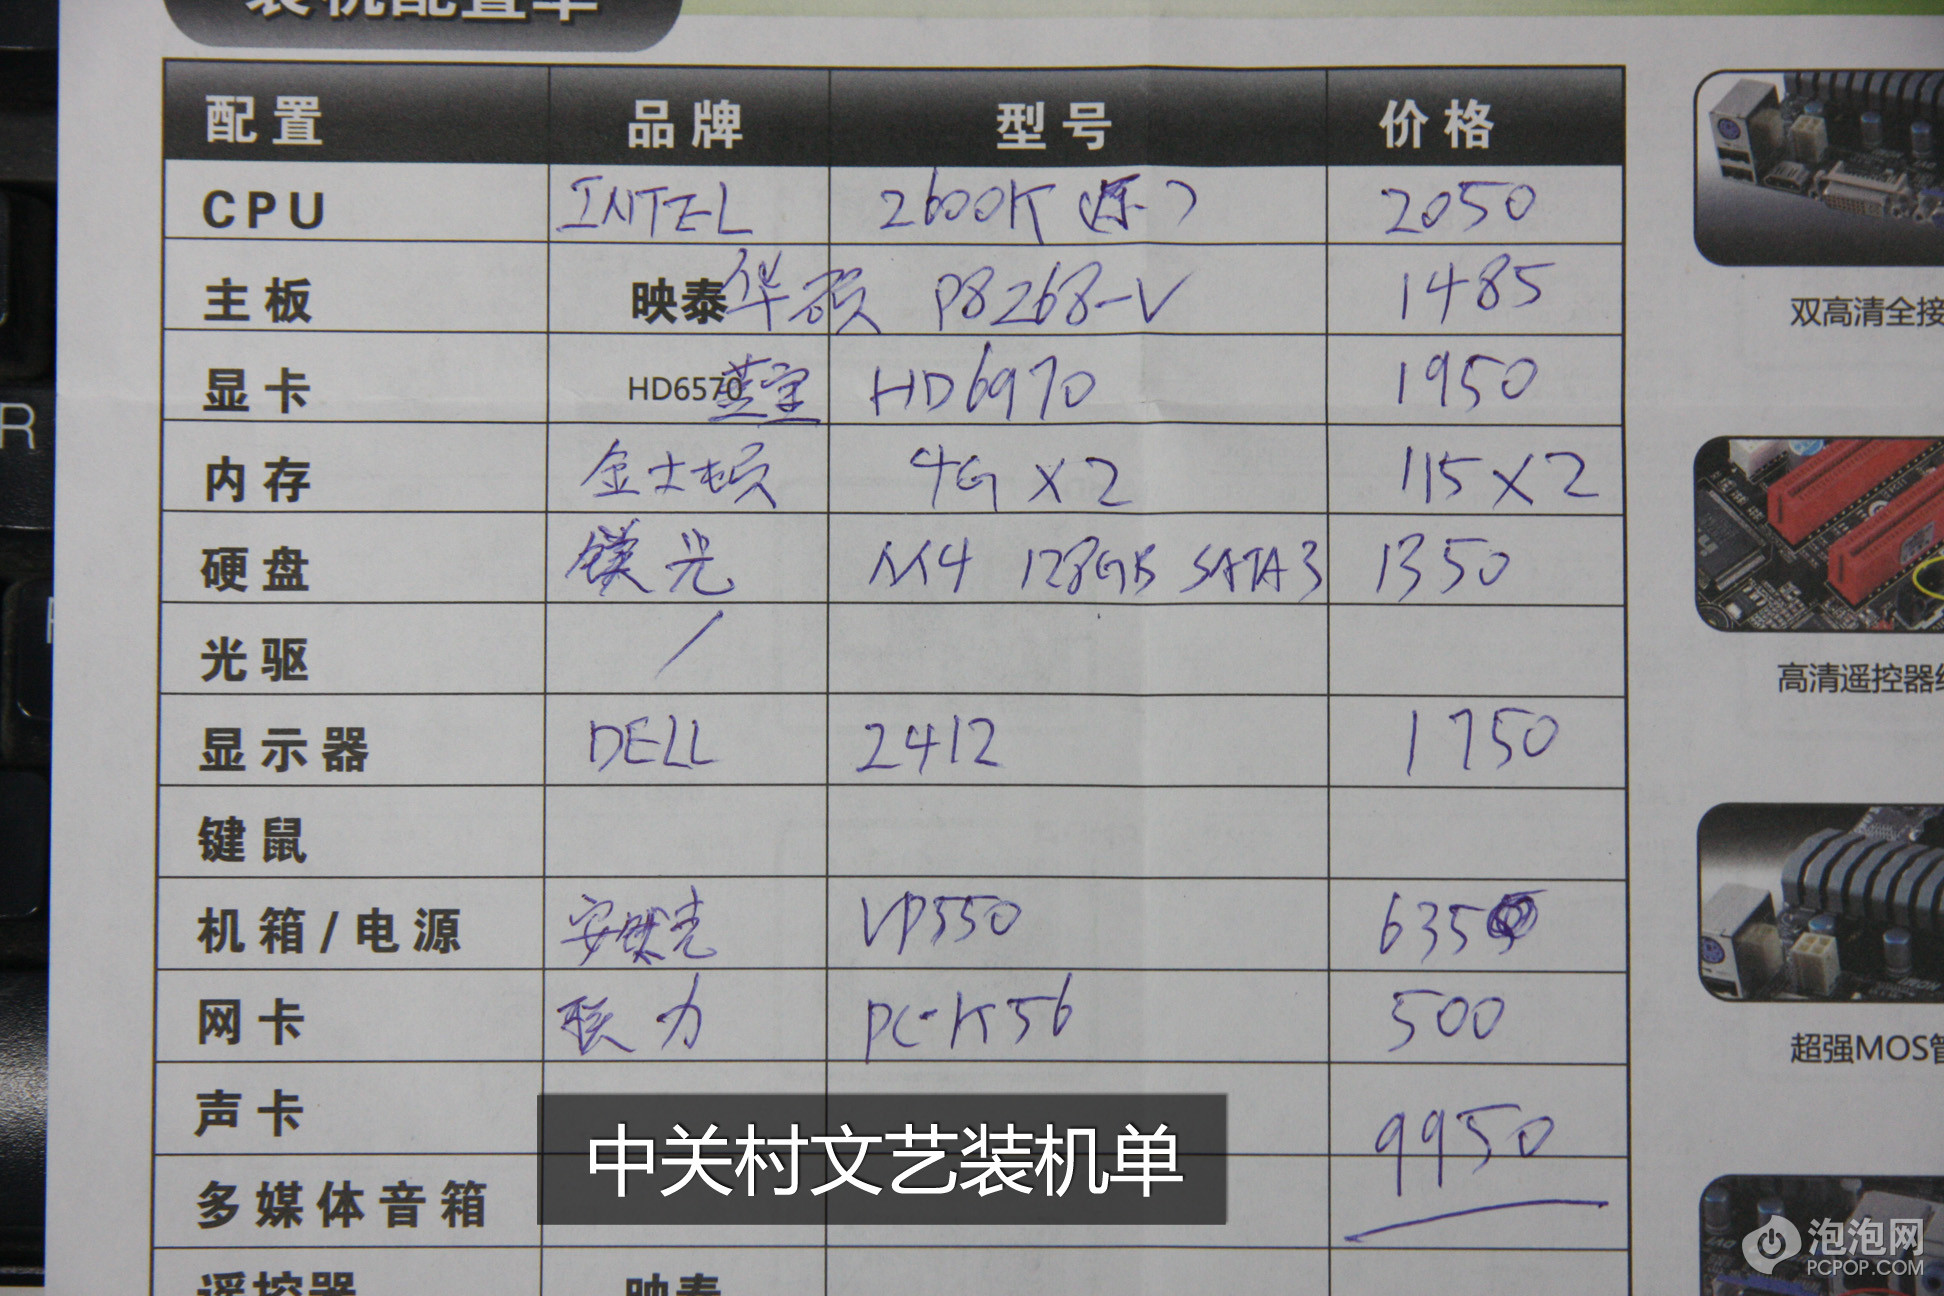 装机配置单
配置 品牌 型号 价格
CPU INTEL 2600K (散) 2050
主板 映泰华硕 P8Z68-V 1485
显卡 HD6570蓝宝 HD6970 1950
内存 金士顿 4G X 2 115 X 2
硬盘 镁光 M4 128GB SATA3 1350
光驱 /
显示器 DELL 2412 1750
键鼠
机箱/电源 安钛克 VP550 635
网卡 联力 PC-K56 500
声卡 9950
多媒体音箱
遥控器 映泰
中关村文艺装机单
双高清全接
高清遥控器
超强MOS管
泡泡网
PCPOP.COM
R